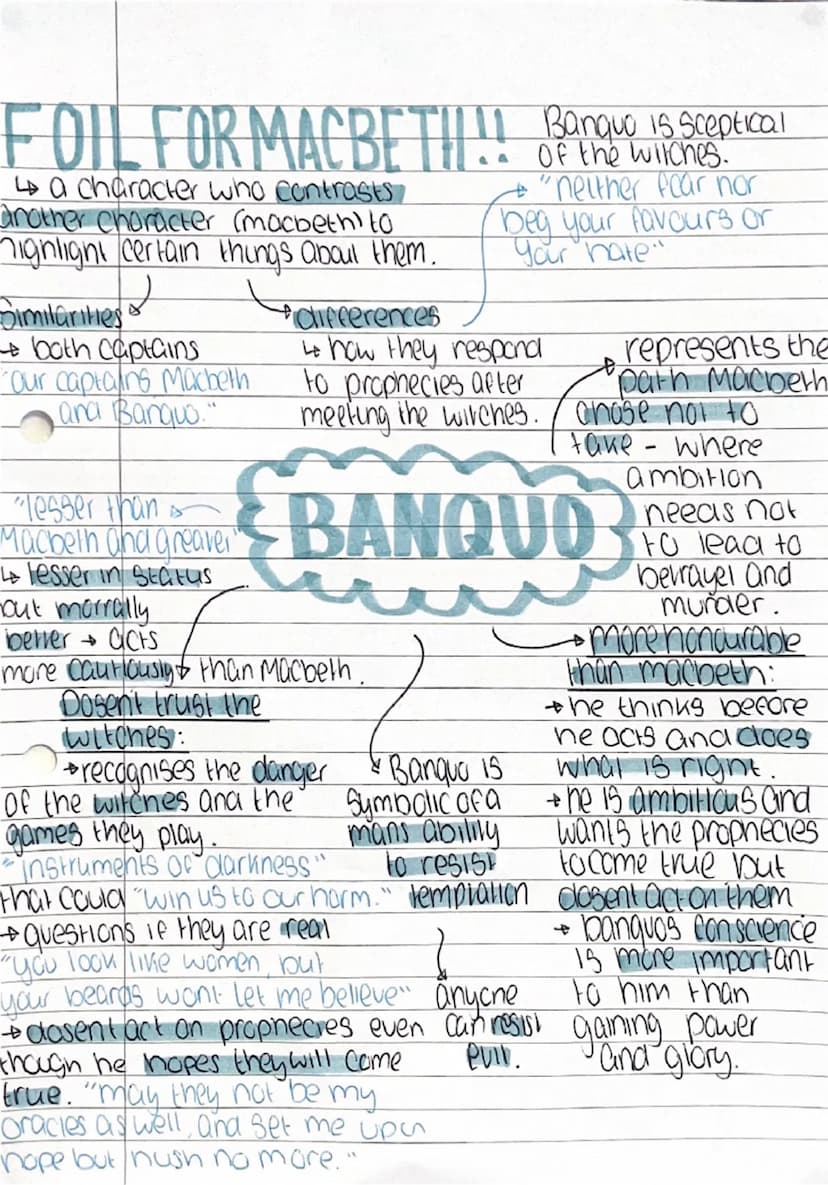 FOIL FOR MACBETH!!
↳ a character who contrasts
another character (macbeth) to
highlight certain things about them.
Banquo is sceptical
of the witches.
"neither fear nor
beg your favours or
your hate"
Similarities
→ both captains
"our captains Macbeth
and Banquo."
differences
↳ how they respond
to prophecies after
meeting the witches.
represents the
path Macbeth
chose not to
take - where
ambition
needs not
to lead to
betrayel and
murder.
BANQUO
"lesser than
Macbeth and greater"
↳ lesser in status
but morrally
better → acts
more cautiously than Macbeth.
Dosen't trust the
witches:
→ recognises the danger
of the witches and the
games they play.
"instruments of darkness"
that could "win us to our harm."
→ questions if they are real
"you look like women, but
your beards wont let me believe"
→ dosent act on prophecies even
though he hopes they will come
true. "may they not be my
oracles as well, and set me upon
hope but hush no more."
Banquo is
symbolic of a
mans ability
to resist
temptation
anyone
can resist
evil.
more honourable
than macbeth:
→ he thinks before
he acts and does
what is right.
→ he is ambitious and
wants the prophecies
to come true but
dosent act on them
→ banquos conscience
is more important
to him than
gaining power
and glory.